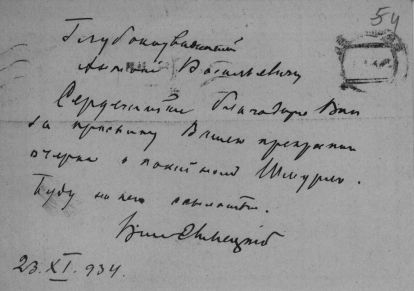 54
Глубокоуважаемый
Антоний Васильевич
Сердечнейше благодарю Вас
за присылку Вашего прекрасного
очерка о покойном Шмурло.
Буду на него ссылаться.
23. XI. 934.